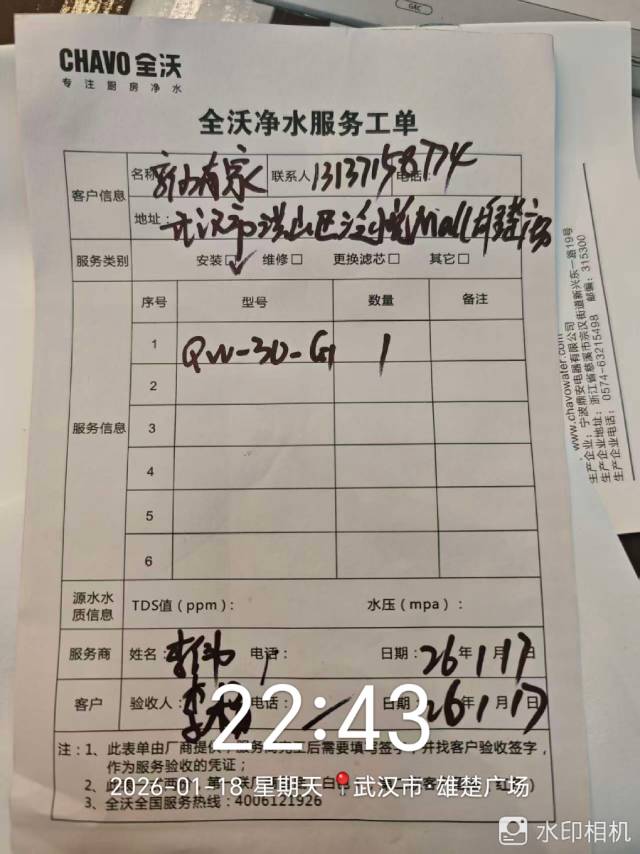 GAC
CHAVO 全沃
专注厨房净水
全沃净水服务工单
客户信息
名称 有家 联系人 13137158774 电话:
地址: 武汉市洪山区 Mall 雄楚广场
服务类别 安装□✓ 维修□ 更换滤芯□ 其它□
服务信息
序号 型号 数量 备注
1 QW-3D-G1 1
2
3
4
5
6
源水水质信息 TDS值(ppm): 水压(mpa):
服务商 姓名: 李伟 电话: / 日期: 26年1月17日
客户 验收人: 李 电话 / 日期: 26年1月17日
注:1、此表单由厂商提供,服务商完工后需要填写签字,并找客户验收签字,
作为服务验收的凭证;
2、此
3、全沃全国服务热线:4006121926
www.chavowater.com
生产企业:宁波鼎安电器有限公司
生产企业地址:浙江省慈溪市宗汉街道新兴东一路19号
生产企业电话:0574-63215498 邮编:315300
22:43
2026-01-18 星期天 武汉市·雄楚广场
水印相机